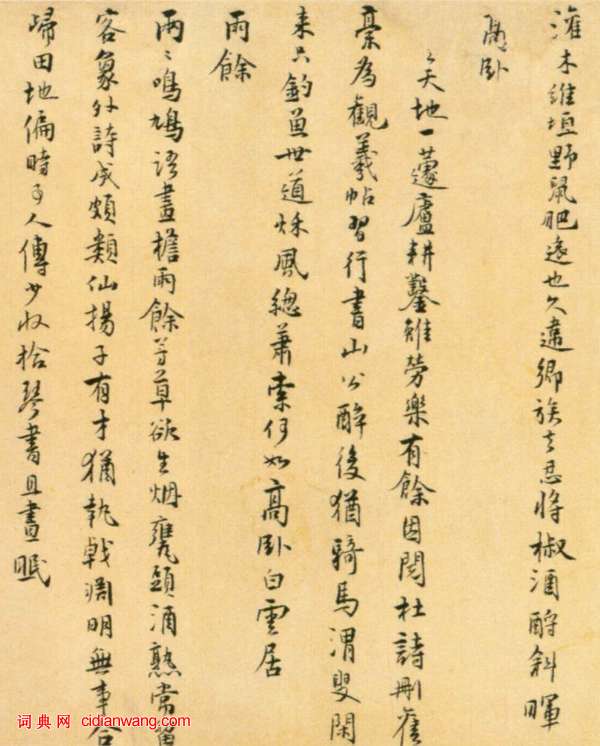 灌木維垣野鼠肥遠也久違鄉族去忍將椒酒酹斜暉
高臥
天地一蘧廬耕鑿雖勞樂有餘因閱杜詩刪舊
稾為觀羲帖習行書山公醉後猶騎馬渭叟閑
来只釣魚世道秋風總蕭索何如高臥白雲居
雨餘
兩〻鳴鳩語畫檐雨餘芳草欲生烟甕頭酒熟常留
客象外詩成頗類仙揚子有才猶執戟淵明無事合
歸田地偏時事人傳少收拾琴書且晝眠
词典网 cidianwang.com